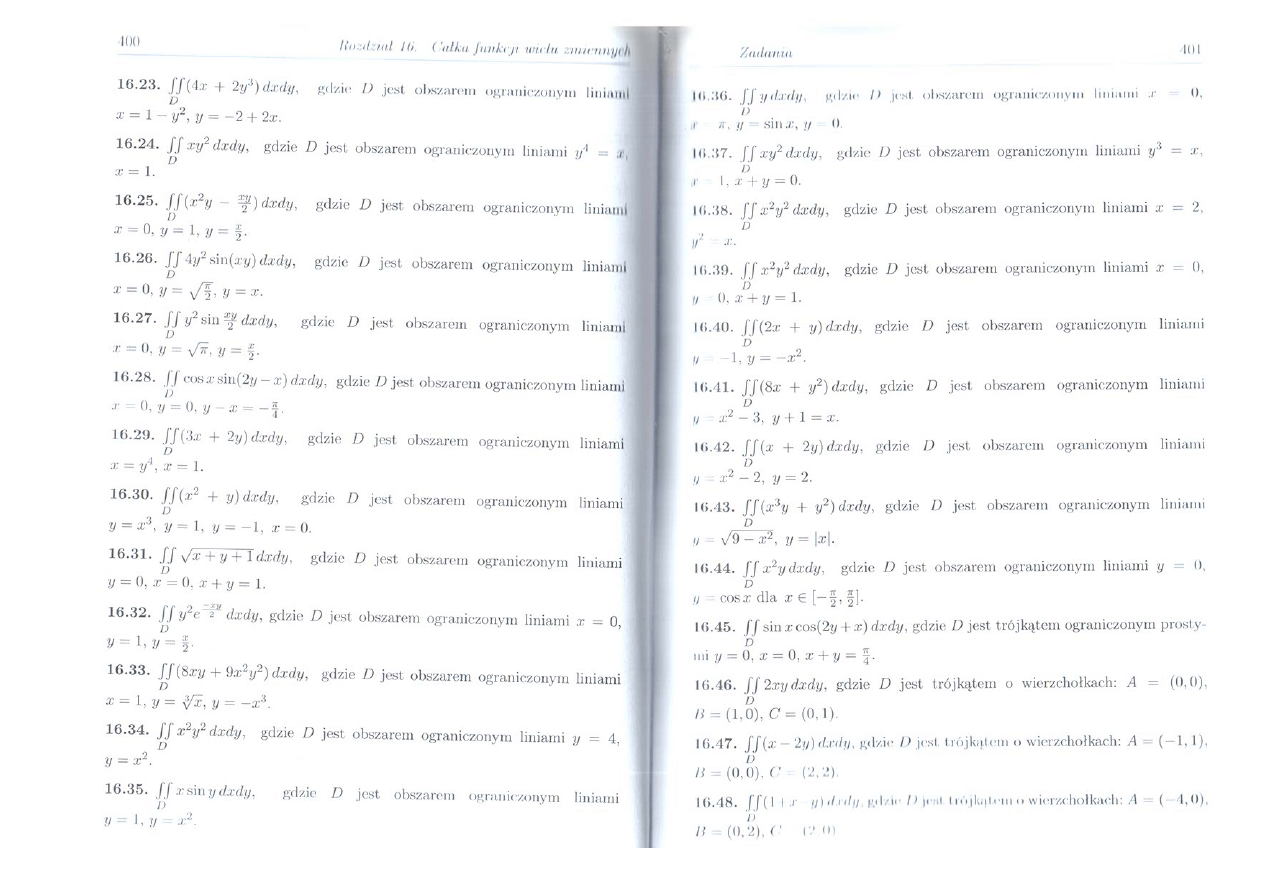 400
Rozdział 16. Całka funkcji wielu zmiennych
16.23. ∬(4x + 2y³) dxdy, gdzie D jest obszarem ograniczonym liniami
D
x = 1 − y², y = −2 + 2x.
16.24. ∬ xy² dxdy, gdzie D jest obszarem ograniczonym liniami y⁴ = x,
D
x = 1.
16.25. ∬(x²y − xy/2) dxdy, gdzie D jest obszarem ograniczonym liniami
D
x = 0, y = 1, y = x/2.
16.26. ∬ 4y² sin(xy) dxdy, gdzie D jest obszarem ograniczonym liniami
D
x = 0, y = √(π/2), y = x.
16.27. ∬ y² sin xy/2 dxdy, gdzie D jest obszarem ograniczonym liniami
D
x = 0, y = √π, y = x/2.
16.28. ∬ cos x sin(2y − x) dxdy, gdzie D jest obszarem ograniczonym liniami
D
x = 0, y = 0, y − x = −π/4.
16.29. ∬(3x + 2y) dxdy, gdzie D jest obszarem ograniczonym liniami
D
x = y⁴, x = 1.
16.30. ∬(x² + y) dxdy, gdzie D jest obszarem ograniczonym liniami
D
y = x³, y = 1, y = −1, x = 0.
16.31. ∬ √(x + y + 1) dxdy, gdzie D jest obszarem ograniczonym liniami
D
y = 0, x = 0, x + y = 1.
16.32. ∬ y²e^(−xy/2) dxdy, gdzie D jest obszarem ograniczonym liniami x = 0,
D
y = 1, y = x/2.
16.33. ∬(8xy + 9x²y²) dxdy, gdzie D jest obszarem ograniczonym liniami
D
x = 1, y = ∛x, y = −x³.
16.34. ∬ x²y² dxdy, gdzie D jest obszarem ograniczonym liniami y = 4,
D
y = x².
16.35. ∬ x sin y dxdy, gdzie D jest obszarem ograniczonym liniami
D
y = 1, y = x².
Zadania
401
16.36. ∬ y dxdy, gdzie D jest obszarem ograniczonym liniami x = 0,
D
x = π, y = sin x, y = 0.
16.37. ∬ xy² dxdy, gdzie D jest obszarem ograniczonym liniami y³ = x,
D
x = 1, x + y = 0.
16.38. ∬ x²y² dxdy, gdzie D jest obszarem ograniczonym liniami x = 2,
D
y² = x.
16.39. ∬ x²y² dxdy, gdzie D jest obszarem ograniczonym liniami x = 0,
D
y = 0, x + y = 1.
16.40. ∬(2x + y) dxdy, gdzie D jest obszarem ograniczonym liniami
D
y = −1, y = −x².
16.41. ∬(8x + y²) dxdy, gdzie D jest obszarem ograniczonym liniami
D
y = x² − 3, y + 1 = x.
16.42. ∬(x + 2y) dxdy, gdzie D jest obszarem ograniczonym liniami
D
y = x² − 2, y = 2.
16.43. ∬(x³y + y²) dxdy, gdzie D jest obszarem ograniczonym liniami
D
y = √(9 − x²), y = |x|.
16.44. ∬ x²y dxdy, gdzie D jest obszarem ograniczonym liniami y = 0,
D
y = cos x dla x ∈ [−π/2, π/2].
16.45. ∬ sin x cos(2y + x) dxdy, gdzie D jest trójkątem ograniczonym prosty-
D
mi y = 0, x = 0, x + y = π/4.
16.46. ∬ 2xy dxdy, gdzie D jest trójkątem o wierzchołkach: A = (0,0),
D
B = (1,0), C = (0,1).
16.47. ∬(x − 2y) dxdy, gdzie D jest trójkątem o wierzchołkach: A = (−1,1),
D
B = (0,0), C = (2,2).
16.48. ∬(1 + x y) dxdy, gdzie D jest trójkątem o wierzchołkach: A = (−4,0),
D
B = (0,2), C (2 0)